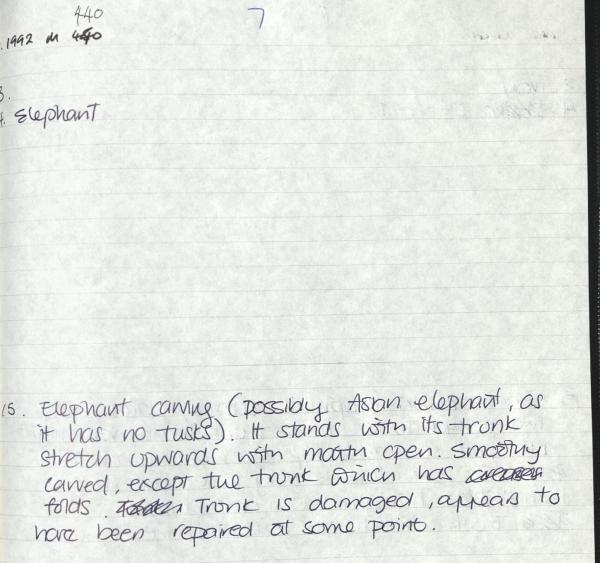 440
.1992 M 450
7
3.
4. Elephant
15. Elephant carving (possibly Asian elephant, as
it has no tusks). It stands with its trunk
stretch upwards with mouth open. Smoothly
carved, except the trunk which has
folds. Trunk is damaged, appears to
have been repaired at some point.